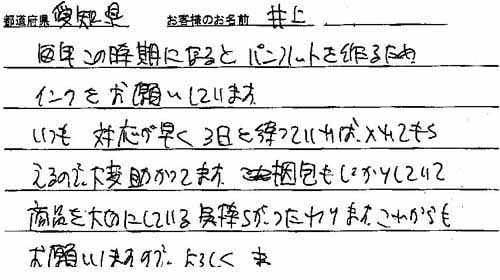 都道府県 愛知県 お客様のお名前 井上
毎年この時期になると パンフレットを作るため
インクをお願いしています
いつも 対応が早く 3日と待っていれば、メールでもらえるので、大変助かってます
梱包もしっかりしていて
商品を大切にしている気持ちがつたわります。これからも
お願いしますので、よろしく